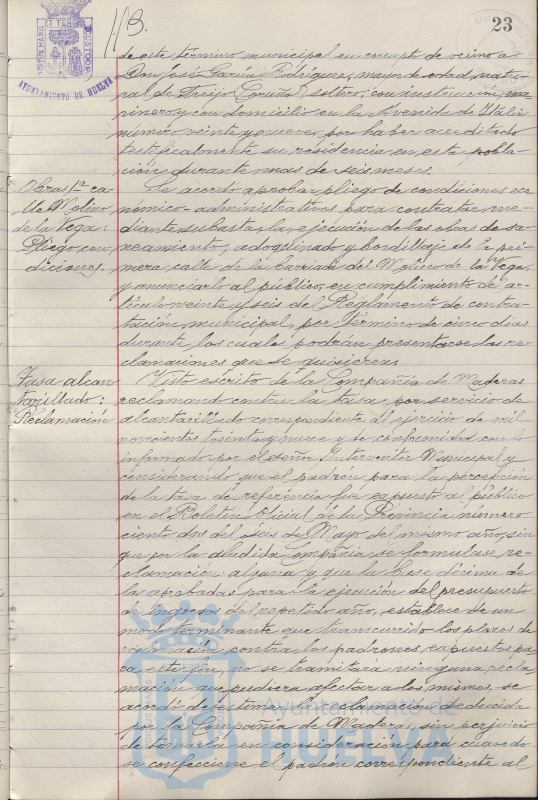 23
AYUNTAMIENTO DE HUELVA
de este término municipal en concepto de vecino a
Don José García Rodríguez, mayor de edad, natu-
ral de Freijo (Coruña), soltero, con instrucción, ma-
rinero y con domicilio en la Avenida de Italia
número veinte y nueve, por haber acreditado
testificalmente su residencia en esta pobla-
ción durante mas de seis meses.
Obras 1ª ca-
lle Molino
de la Vega:
Pliego con-
diciones.
Se acordó aprobar pliego de condiciones eco-
nómico-administrativas para contratar me-
diante subasta, la ejecución de las obras de sa-
neamiento, adoquinado y bordillaje de la pri-
mera calle de la barriada del Molino de la Vega,
y anunciarlo al público, en cumplimiento de ar-
tículo veinte y seis del Reglamento de contra-
tación municipal, por término de cinco días
durante los cuales podrán presentarse las re-
clamaciones que se quisieren.
Tasa alcan-
tarillado:
Reclamación
Visto escrito de la Compañía de Maderas
reclamando contra la tasa por servicio de
alcantarillado correspondiente al ejercicio de mil
novecientos treinta y nueve y de conformidad con lo
informado por el señor Interventor Municipal y
considerando que el padrón para la percepción
de la tasa de referencia fué expuesto al público
en el Boletín Oficial de la Provincia número
ciento dos del seis de Mayo del mismo año, sin
que por la aludida Compañía se formulase re-
clamación alguna y que la base décima de
las aprobadas para la ejecución del presupuesto
de ingresos del repetido año, establece de un
modo terminante que transcurrido los plazos de
reclamación contra los padrones, expuestos pa-
ra este fin, no se tramitará ninguna recla-
mación que pudiera afectar a los mismos, se
acordó desestimar la reclamación deducida
por la Compañía de Maderas, sin perjuicio
de tomarla en consideración para cuando
se confeccione el padrón correspondiente al
Ayuntamiento de
HUELVA